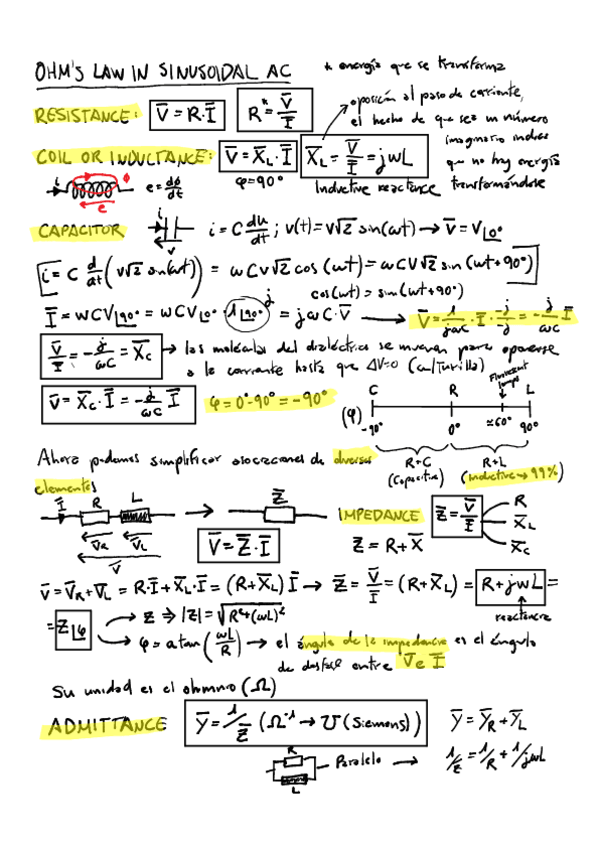 OHM'S LAW IN SINUSOIDAL AC
* energía que se transforma
RESISTANCE: V̅ = R·I̅ R* = V̅/I̅
oposición al paso de corriente,
el hecho de que sea un número
imaginario indica
que no hay energía
transformándose
COIL OR INDUCTANCE: V̅ = X̅L·I̅ X̅L = V̅/I̅ = jωL
φ=90° Inductive reactance
i e = dϕ/dt
ϕ
e
CAPACITOR i = C du/dt ; v(t) = V√2 sin(ωt) → V̅ = V∟0°
i
v
i = C d/dt (V√2 sin(ωt)) = ωCV√2 cos(ωt) = ωCV√2 sin(ωt+90°)
cos(ωt) = sin(ωt+90°)
I̅ = ωCV∟90° = ωCV∟0° · 1∟90° = jωC·V̅ → V̅ = 1/jωC · I̅ · -j/-j = -j/ωC I̅
j
V̅/I̅ = -j/ωC = X̅C → las moléculas del dieléctrico se mueven para oponerse
a la corriente hasta que ΔV=0
V̅ = X̅C·I̅ = -j/ωC I̅ φ = 0°-90° = -90°
Fluorescent
lamps
C R L
(φ) -90° 0° ≃60° 90°
R+C R+L
(Capacitive) (inductive → 99%)
Ahora podemos simplificar asociaciones de diversos
elementos
I̅ R L → Z̅
V̅R V̅L
V̅
V̅ = Z̅·I̅
IMPEDANCE Z̅ = V̅/I̅ R
X̅L
X̅C
Z̅ = R+X̅
V̅ = V̅R+V̅L = R·I̅+X̅L·I̅ = (R+X̅L) I̅ → Z̅ = V̅/I̅ = (R+X̅L) = R+jωL =
reactancia
= Z∟φ → Z ⇒ |Z| = √R²+(ωL)²
→ φ = atan(ωL/R) → el ángulo de la impedancia es el ángulo
de desfase entre V̅ e I̅
Su unidad es el ohmnio (Ω)
ADMITTANCE Y̅ = 1/Z̅ (Ω⁻¹ → ℧ (Siemens)) Y̅ = Y̅R+Y̅L
R
L
Paralelo → 1/Z̅ = 1/R + 1/jωL